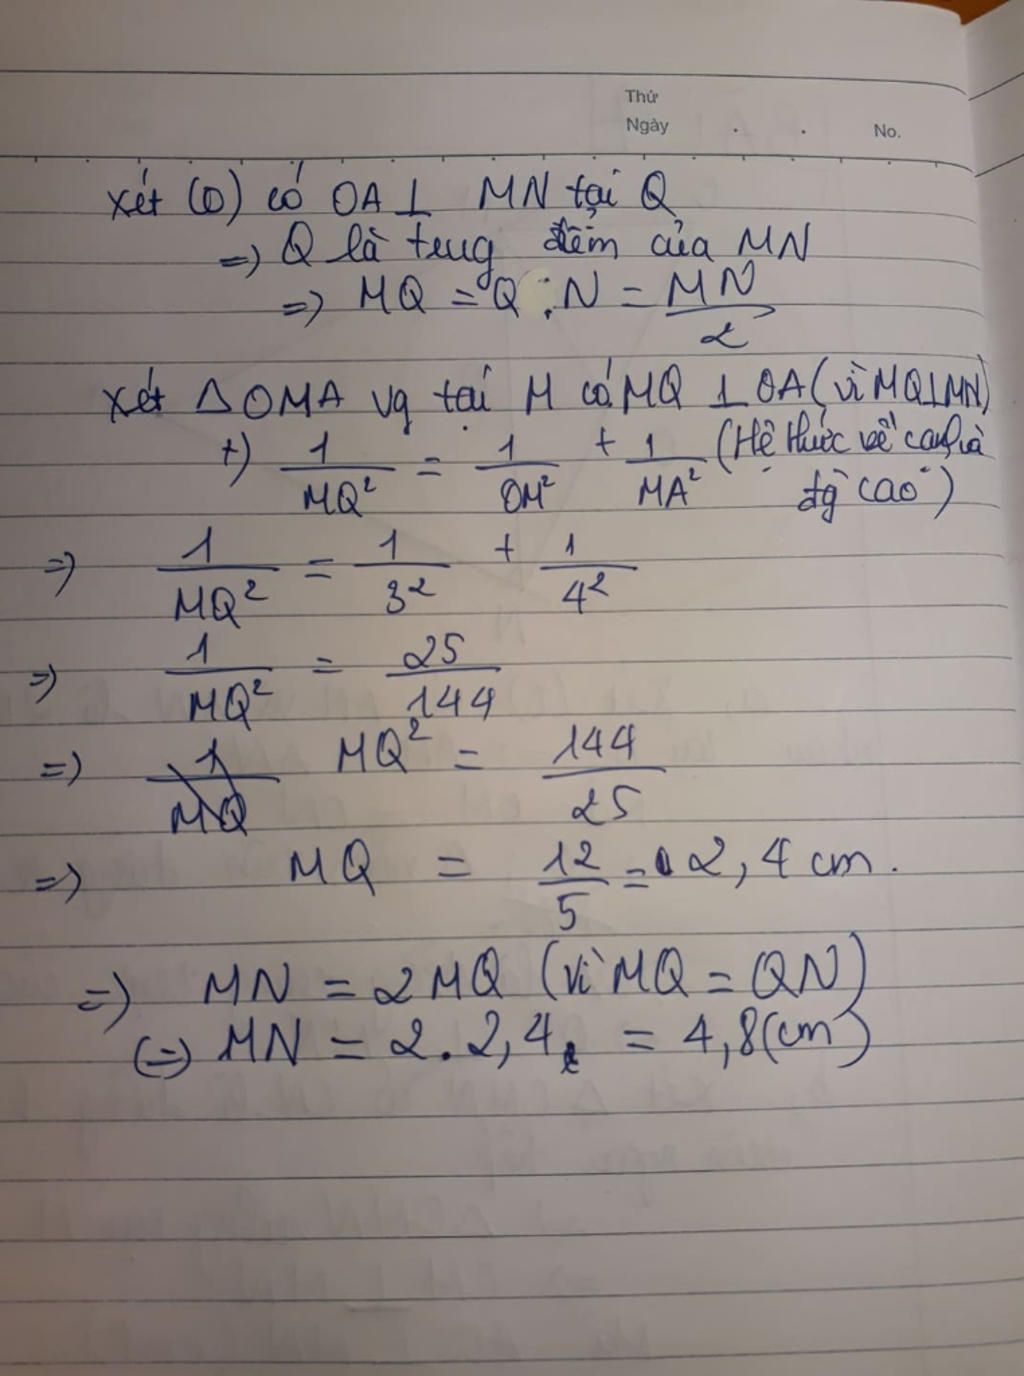 Thứ
Ngày . . No.
xét (O) có OA ⊥ MN tại Q
=> Q là trung điểm của MN
=> MQ = QN = MN/2
xét △OMA vg tại M có MQ ⊥ OA (vì MQ⊥MN)
+) 1/MQ² = 1/OM² + 1/MA² (Hệ thức về cạnh và
đg cao)
=> 1/MQ² = 1/3² + 1/4²
=> 1/MQ² = 25/144
=> MQ² = 144/25
=> MQ = 12/5 = 2,4 cm.
=> MN = 2MQ (vì MQ = QN)
(=) MN = 2.2,4 = 4,8(cm)